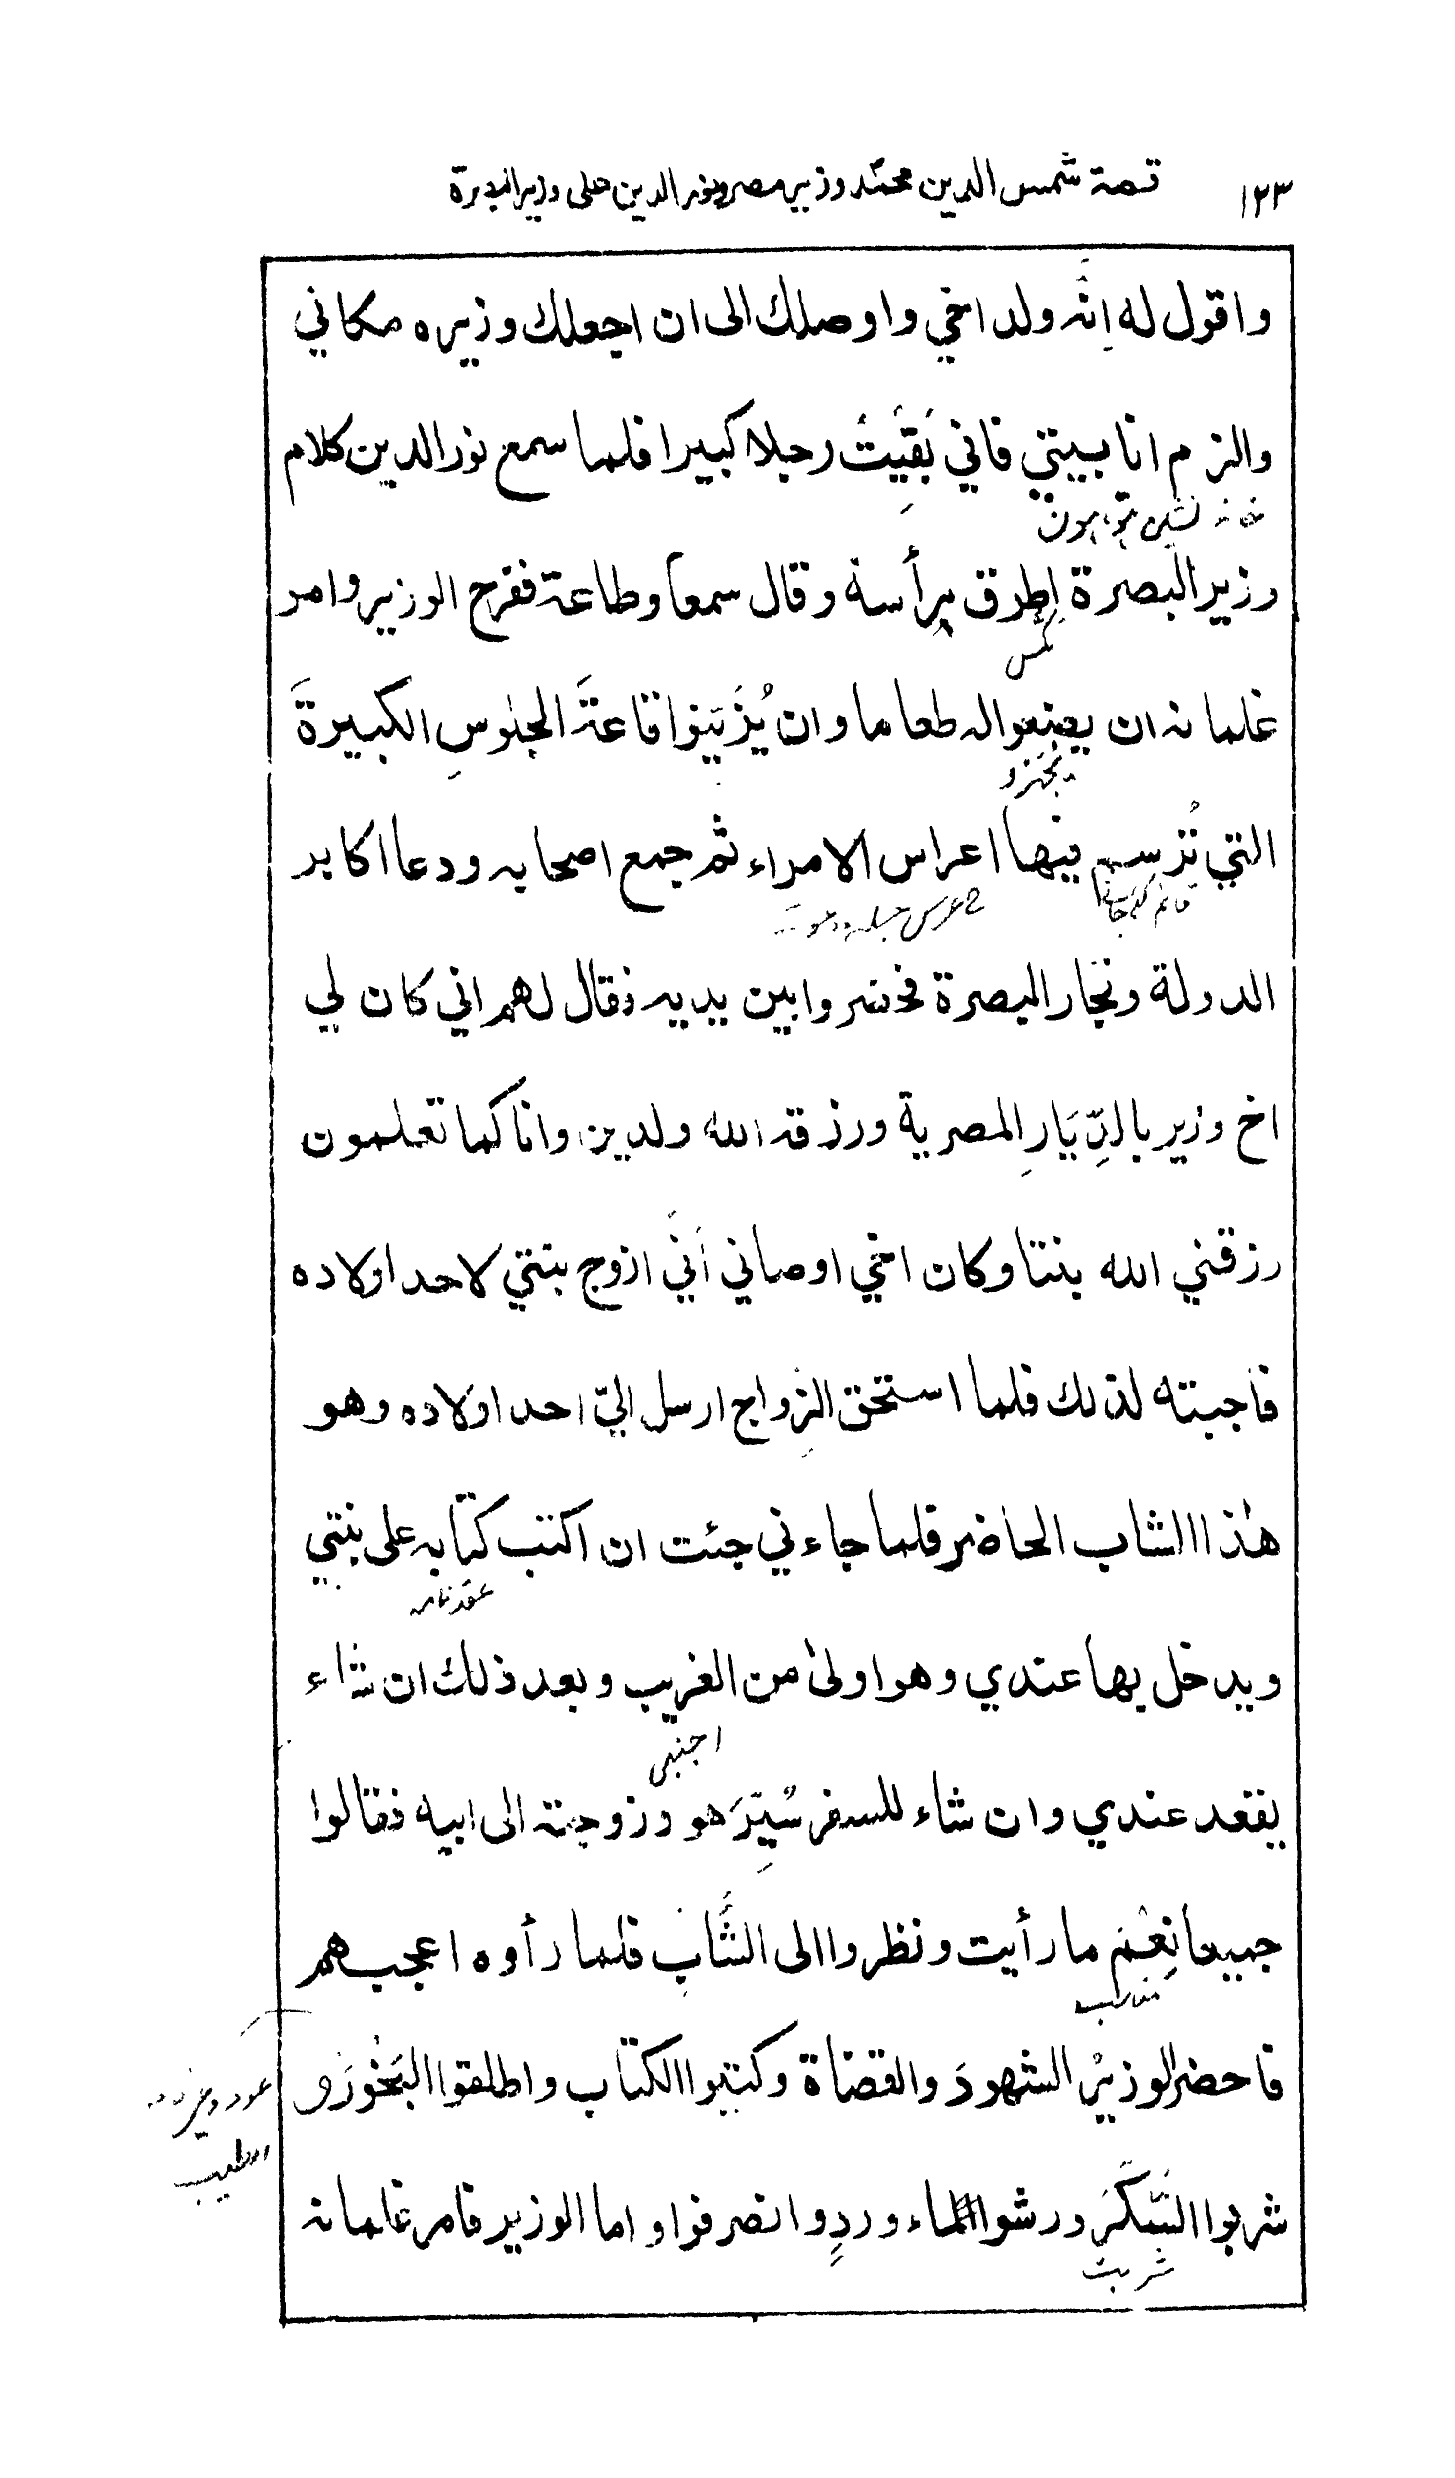 ١٢٣ قصة شمس الدين محمّد وزير مصر ونور الدين على وزير البصرة
واقول له اِنَّه ولد اخي واوصلك الى ان اجعلك وزيره مكاني
والزم انا بيتي فاني بَقِيَتُ رجلا كبيرا فلما سمع نور الدين كلام
خانه نشين
وزير البصرة اطرق برأسه وقال سمعا وطاعة ففرح الوزير وامر
غلمانه ان يصنعوا له طعاما وان يُزَيّنوا قاعةَ الجلوسِ الكبيرةَ
التي تُرسم فيها اعراس الامراء ثم جمع اصحابه ودعا اكابر
الدولة وتجار البصرة فحضروا بين يديه فقال لهم اني كان لي
اخ وزير بالدِّيَارِ المصرية ورزقه الله ولدين وانا كما تعلمون
رزقني الله بنتا وكان اخي اوصاني أنَّي ازوج بنتي لاحد اولاده
فاجبته لذلك فلما استحق الزِواج ارسل اليّ احد اولاده وهو
هٰذا الشاب الحاضر فلما جاءني جئت ان اكتب كتابه على بنتي
عقد نامه
ويدخل بها عندي وهو اولىٰ من الغريب وبعد ذلك ان شاء
اجنبى
يقعد عندي وان شاء للسفر سُيِّرَ هو وزوجته الى ابيه فقالوا
جميعا نِعْمَ ما رأيت ونظروا الى الشَّابِ فلما رأوه اعجبهم
فاحضر الوزيرُ الشهودَ والقضاة وكتبوا الكتاب واطلقوا البَخُورَ و
عود وغيره
الطيب
شربوا السُّكَّرَ ورشوا الماء وردِوا نصرفوا واما الوزير فامر غلمانه
شربت